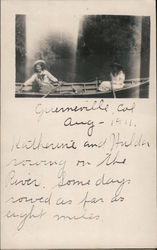 Guerneville, Cal
Aug - 1911.
Katherine and Huldu
rowing on the
River. Some days
rowed as far as
eight miles